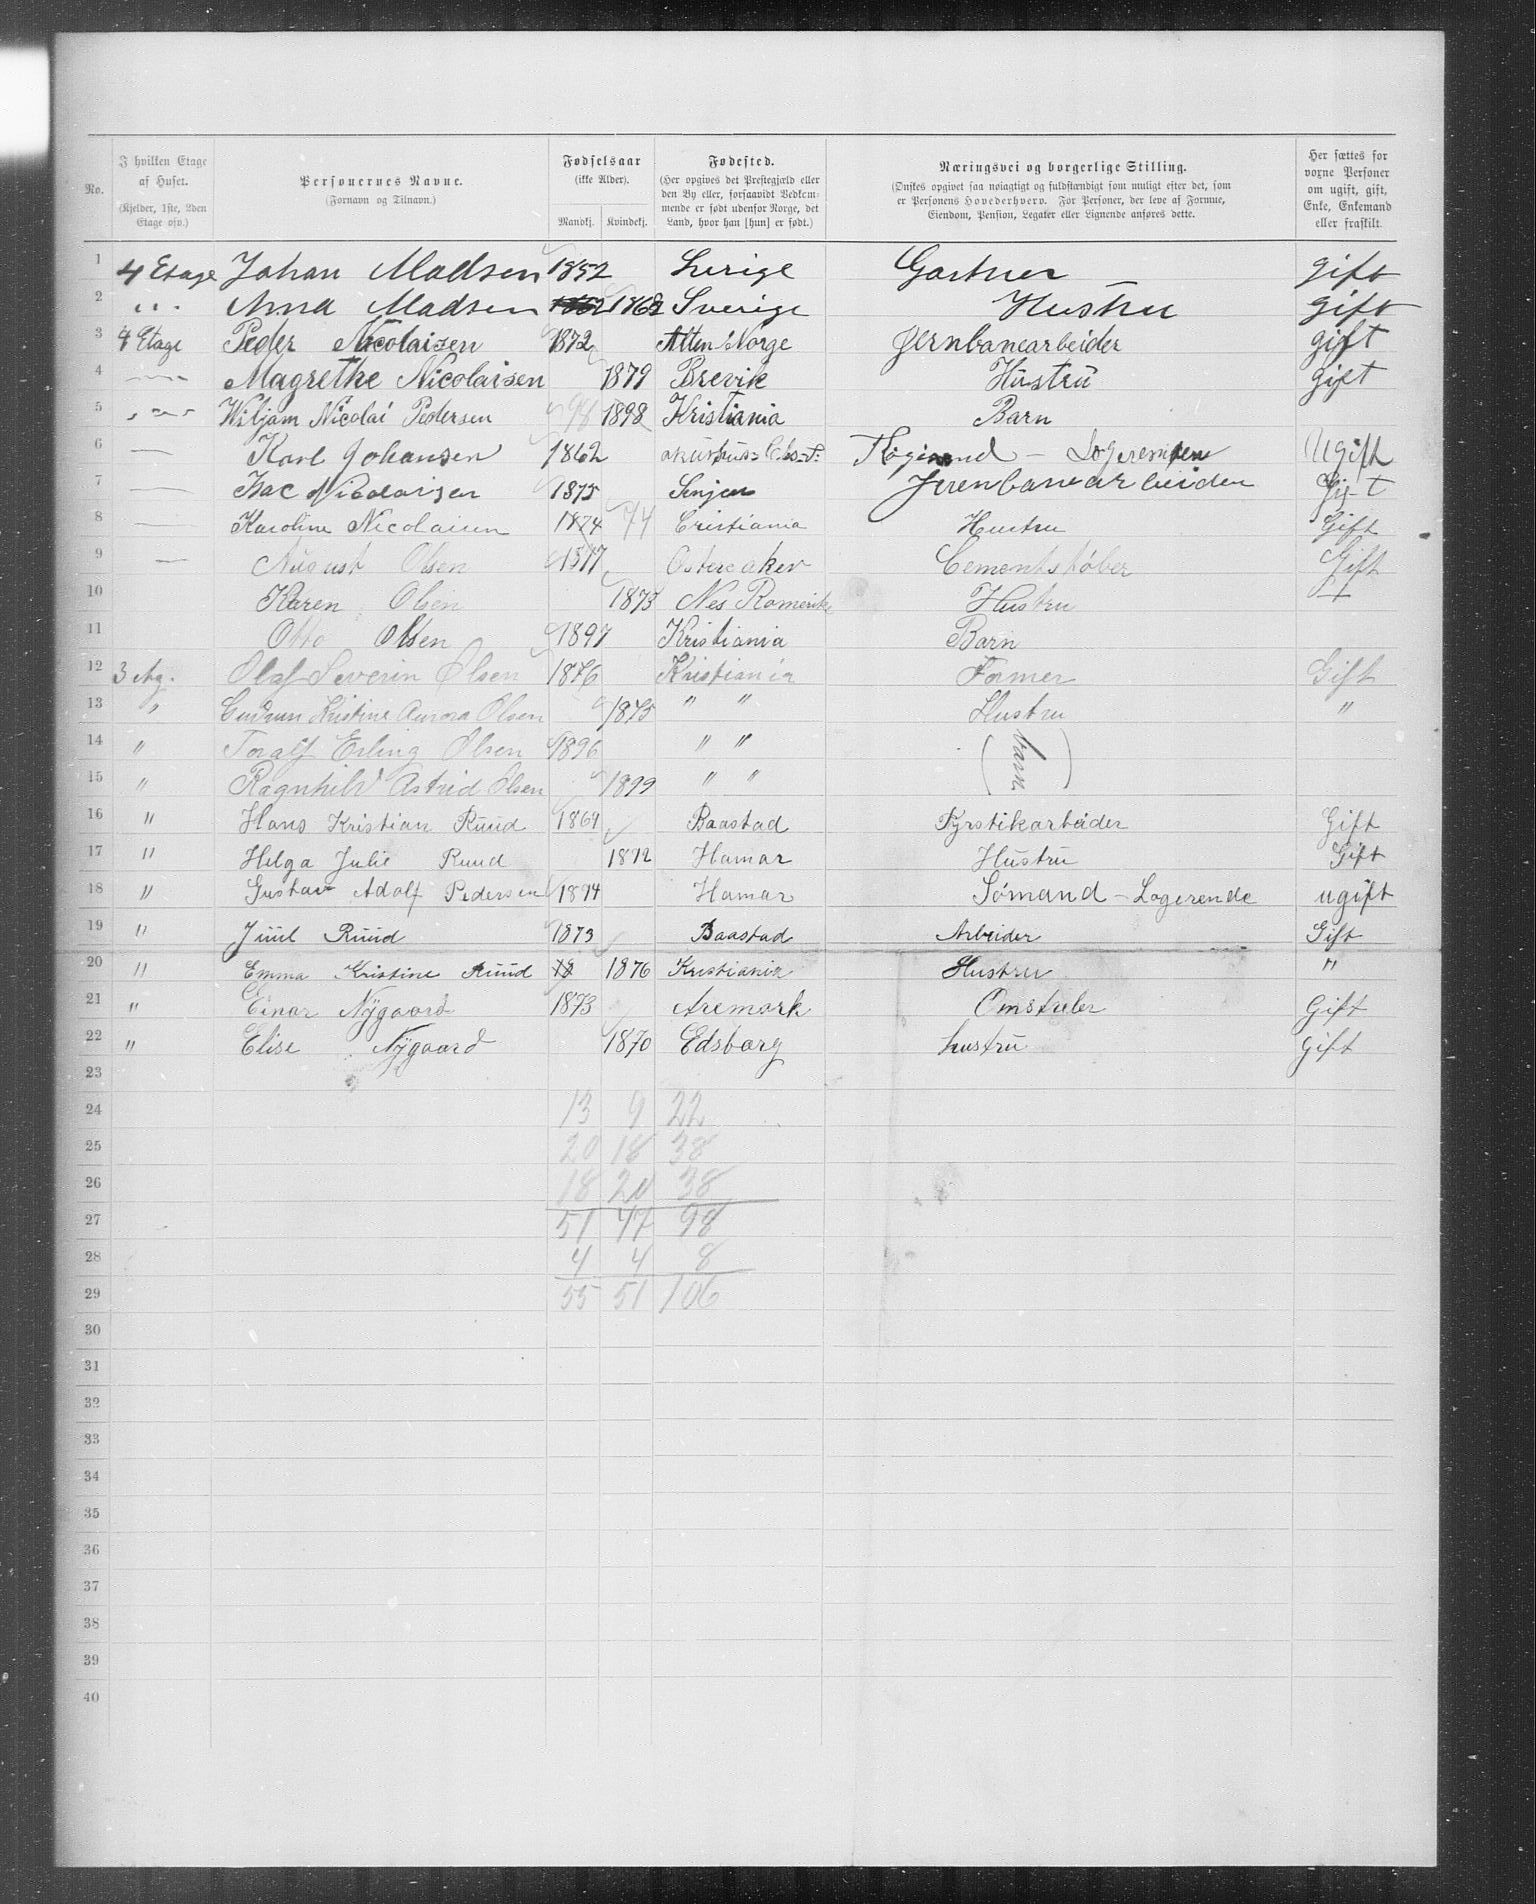 No.
I hvilken Etage af Huset. (Kjelder, 1ste, 2den Etage osv.)
Personernes Navne. (Fornavn og Tilnavn.)
Fødselsaar (ikke Alder). Mandkj. Kvindekj.
Fødested. (Her opgives det Prestegjæld eller den By eller, forsaavidt Vedkommende er født udenfor Norge, det Land, hvor han [hun] er født.)
Næringsvei og borgerlige Stilling. (Ønskes opgivet saa nøiagtigt og fuldstændigt som muligt efter det, som er Personens Hovederhverv. For Personer, der leve af Formue, Eiendom, Pension, Legater eller Lignende anføres dette.
Her sættes for voxne Personer om ugift, gift, Enke, Enkemand eller fraskilt.
1 4 Etage Johan Madsen 1852 Sverige Gartner gift
2 " " Anna Madsen 1862 Sverige Hustru gift
3 4 Etage Peder Nicolaisen 1872 Alten Norge Jernbanearbeider gift
4 — Magrethe Nicolaisen 1879 Brevik Hustru gift
5 — Wiljam Nicolai Pedersen 98 1898 Kristiania Barn
6 — Karl Johansen 1862 Ugift
7 — Isac Nicolaisen 1875 Senjen Jerenbanearbeider Gift
8 — Karoline Nicolaisen 1874 74 Cristiania Hustru Gift
9 — August Olsen 1877 Østereaker Cementstøber Gift
10 Karen Olsen 1873 Nes Romerike Hustru
11 Otto Olsen 1897 Kristiania Barn
12 3 Etg. Olaf Severin Olsen 1876 Kristiania Former Gift
13 " Gudrun Kristine Aurora Olsen 1875 " " Hustru "
14 " Toralf Erling Olsen 1896 " " (barn)
15 " Ragnhild Astrid Olsen 1899 " "
16 " Hans Kristian Ruud 1869 Baastad Fyrstikarbeider Gift
17 " Helga Julie Ruud 1872 Hamar Hustru Gift
18 " Gustav Adolf Pedersen 1874 Hamar Sömand - Logerende ugift
19 " Juul Ruud 1873 Baastad Arbeider Gift
20 " Emma Kristine Ruud 1876 Kristiania Hustru "
21 " Einar Nygaard 1873 Aremark Gift
22 " Elise Nygaard 1870 Edsbarg hustru Gift
23
24 13 9 22
25 20 18 38
26 18 20 38
27 51 47 98
28 4 4 8
29 55 51 106
30
31
32
33
34
35
36
37
38
39
40